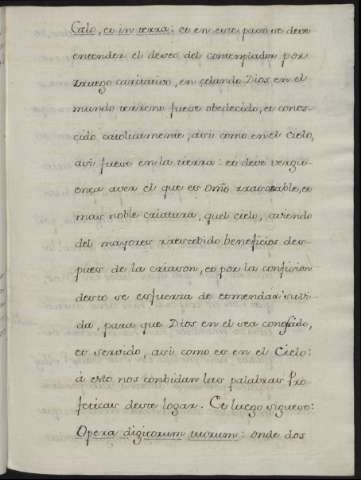 Celo, et in terra: et en este paso se deve
entender el deseo del contemplador por
ruego caritativo, en celando Dios en el
mundo terreno fuese obedecido, et conos-
cido catolicamente, asi como en el Cielo,
asi fuese en la tierra: et deve vergu-
enza aver el que es omẽ rrazonable, et
mas noble criatura, quel cielo, aviendo
del mayores rrescebido beneficios des-
pues de la criaron, et por la confusion
desto se esfuerza de emendar su vi-
da, para que Dios en el sea conoscido,
et servido, asi como es en el Cielo:
á esto nos conbidan las palabras Pro-
feticas deste logar. Et luego siguese:
Opera digitorum tuorum: onde dos